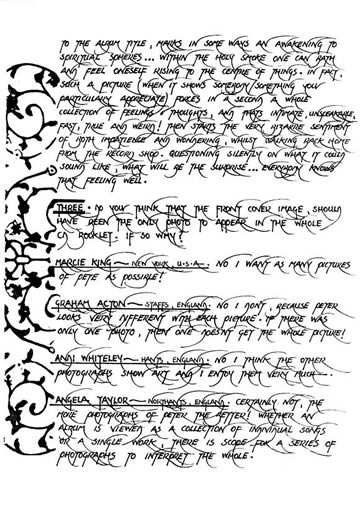 TO THE ALBUM TITLE, MARKS IN SOME WAYS AN AWAKENING TO
SPIRITUAL SPHERES... WITHIN THE HOLY SMOKE ONE CAN BATH
AND FEEL ONESELF RISING TO THE CENTRE OF THINGS. IN FACT,
SUCH A PICTURE (WHEN IT SHOWS SOMEBODY/SOMETHING YOU
PARTICULARLY APPRECIATE) FORCES IN A SECOND A WHOLE
COLLECTION OF FEELINGS & THOUGHTS, AND THAT'S INTIMATE, UNSPEAKABLE,
FAST, TRUE AND WEIRD! THEN STARTS THE VERY BIZARRE SENTIMENT
OF BOTH IMPATIENCE AND WONDERING, WHILST WALKING BACK HOME
FROM THE RECORD SHOP. QUESTIONING SILENTLY ON WHAT IT COULD
SOUND LIKE, WHAT WILL BE THE SURPRISE... EVERYBODY KNOWS
THAT FEELING WELL.
THREE. DO YOU THINK THAT THE FRONT COVER IMAGE, SHOULD
HAVE BEEN THE ONLY PHOTO TO APPEAR IN THE WHOLE
CD BOOKLET. IF SO WHY?
MARCIE KING ~ NEW YORK, U.S.A. NO I WANT AS MANY PICTURES
OF PETE AS POSSIBLE!
GRAHAM ACTON ~ STAFFS, ENGLAND. NO I DON'T, BECAUSE PETER
LOOKS VERY DIFFERENT WITH EACH PICTURE. IF THERE WAS
ONLY ONE PHOTO, THEN ONE DOESN'T GET THE WHOLE PICTURE!
ANDI WHITELEY ~ HANTS, ENGLAND. NO I THINK THE OTHER
PHOTOGRAPHS SHOW ART AND I ENJOY THEM VERY MUCH.
ANGELA TAYLOR ~ NORTHANTS, ENGLAND. CERTAINLY NOT, THE
MORE PHOTOGRAPHS OF PETER THE BETTER! WHETHER AN
ALBUM IS VIEWED AS A COLLECTION OF INDIVIDUAL SONGS
OR A SINGLE WORK, THERE IS SCOPE FOR A SERIES OF
PHOTOGRAPHS TO INTERPRET THE WHOLE.